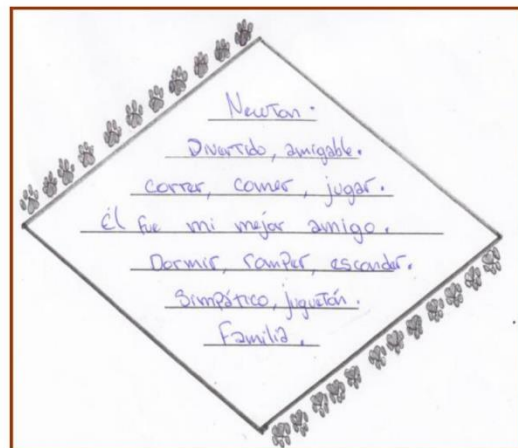 Newton.
Divertido, amigable.
correr, comer, jugar.
Él fue mi mejor amigo.
Dormir, romper, esconder.
Simpático, juguetón.
Familia.